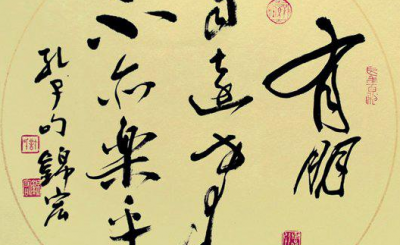 有朋
自遠方来
不亦樂乎
孔子句 錦宏